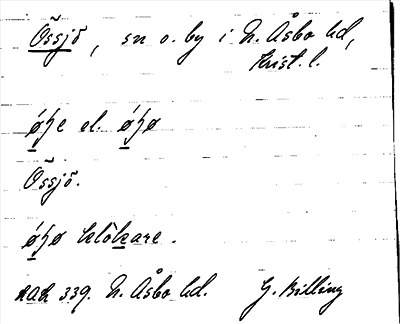 Össjö, sn o. by i N. Åsbo hd,
Krist. l.
øʃe el. øʃø
Össjö.
øʃø klôkare.
339. N. Åsbo hd. G. Billing